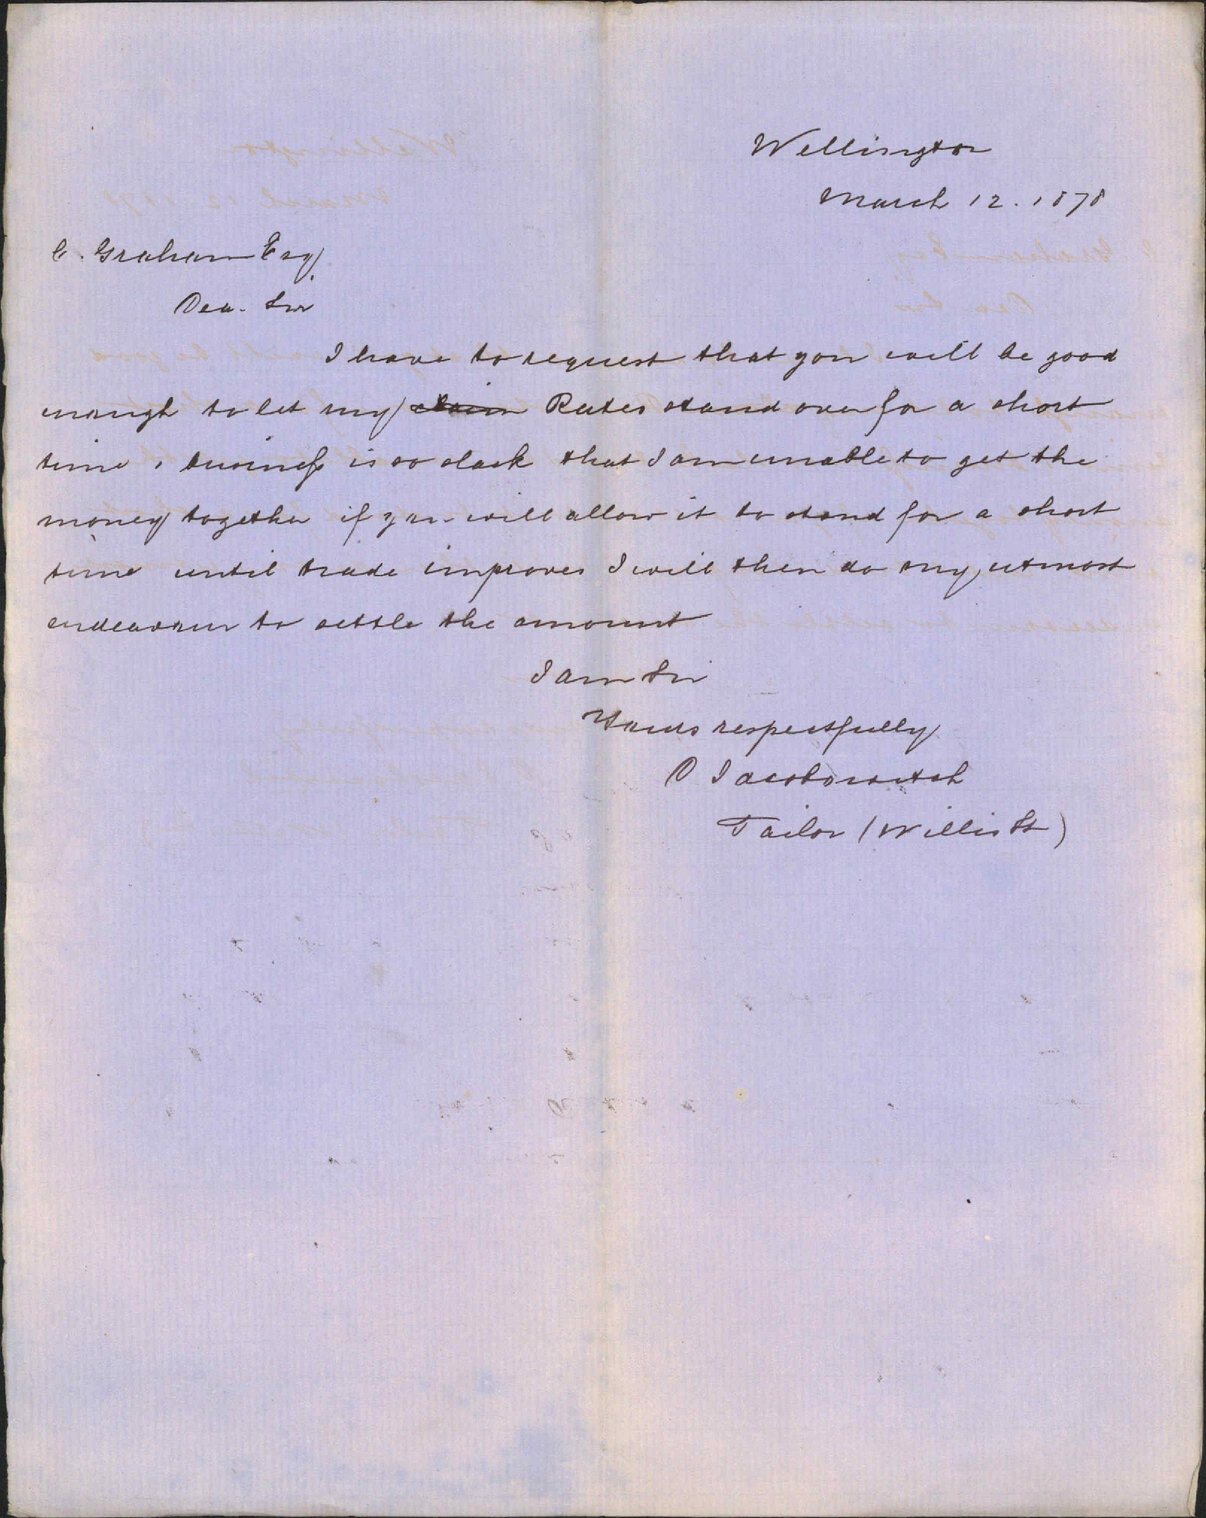 Wellington
March 12. 1878
C. Graham Esq
Dear Sir
I have to request that you will be good
enough to let my claim Rates stand over for a short
time, business is so slack that I am unable to get the
money together if you will allow it to stand for a short
time until trade improves I will then do my utmost
endeavour to settle the amount
I am Sir
Yours respectfully
D Jacobowitch
Tailor (Willis St)